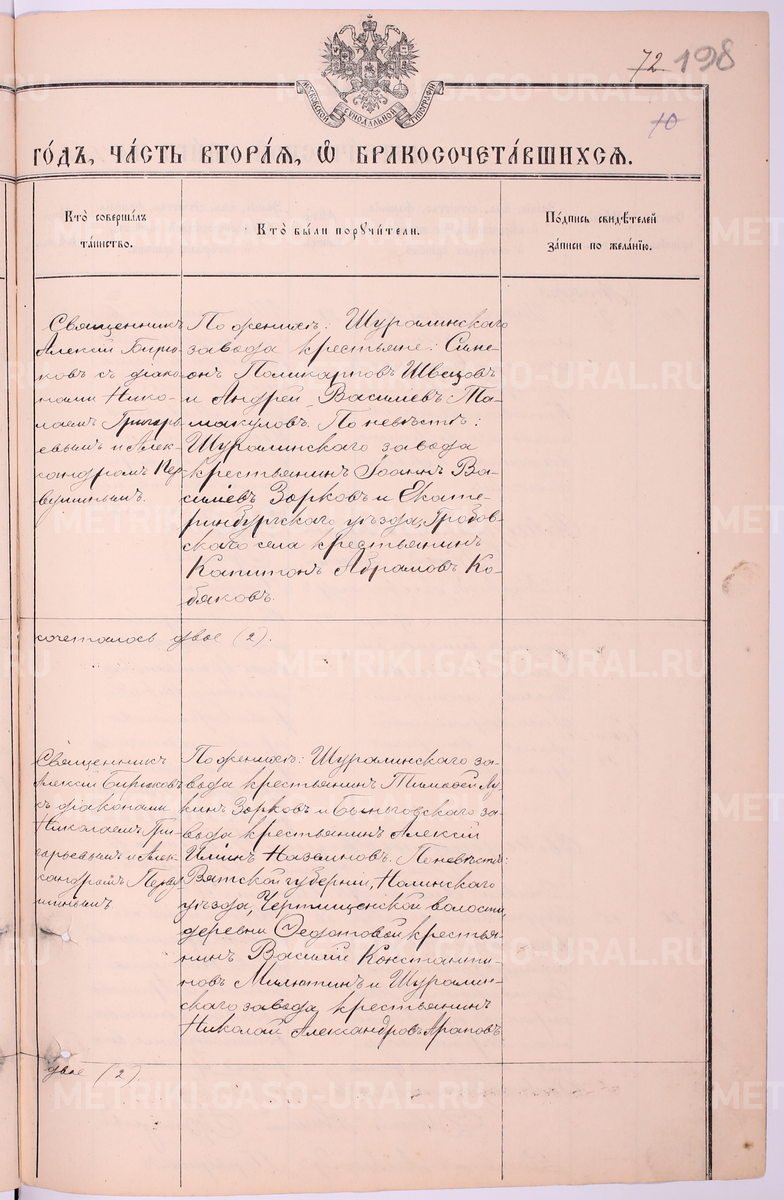 72 198
70
МОСКОВСКОЙ СѴНОДАЛЬНОЙ ТИПОГРАФІИ
ГОДЪ, ЧАСТЬ ВТОРАЯ, Ѡ БРАКОСОЧЕТАВШИХСЯ.
Кто совершалъ
таинство.
Кто были поручители.
Подпись свидѣтелей
записи по желанію.
Священникъ
Алексій Бирю-
ковъ съ діако-
нами Нико-
лаемъ Григорь-
евымъ и Алек-
сандромъ Пер-
вушинымъ.
По женихѣ: Шуралинскаго
завода крестьяне: Симе-
онъ Поликарповъ Швецовъ
и Андрей Васильевъ Та-
макуловъ. По невѣстѣ:
Шуралинскаго завода
крестьянинъ Іоаннъ Ва-
сильевъ Зорковъ и Екате-
ринбургскаго уѣзда, Гробов-
скаго села крестьянинъ
Капитонъ Абрамовъ Ко-
бяковъ.
сочеталось двое (2).
Священникъ
Алексій Бирюковъ
съ діаконами
Николаемъ Гри-
горьевымъ и Алек-
сандромъ Перву-
шинымъ
По женихѣ: Шуралинскаго за-
вода крестьянинъ Тимофей Лу-
кинъ Зорковъ и Быньговскаго за-
вода крестьянинъ Алексій
Ильинъ Наземновъ. По невѣстѣ:
Вятской губерніи, Нолинскаго
уѣзда, волости,
деревни Ѳедотовой крестья-
нинъ Василій Константи-
новъ Милютинъ и Шуралин-
скаго завода крестьянинъ
Николай Александровъ Араповъ
двое (2).
METRIKI.GASO-URAL.RU